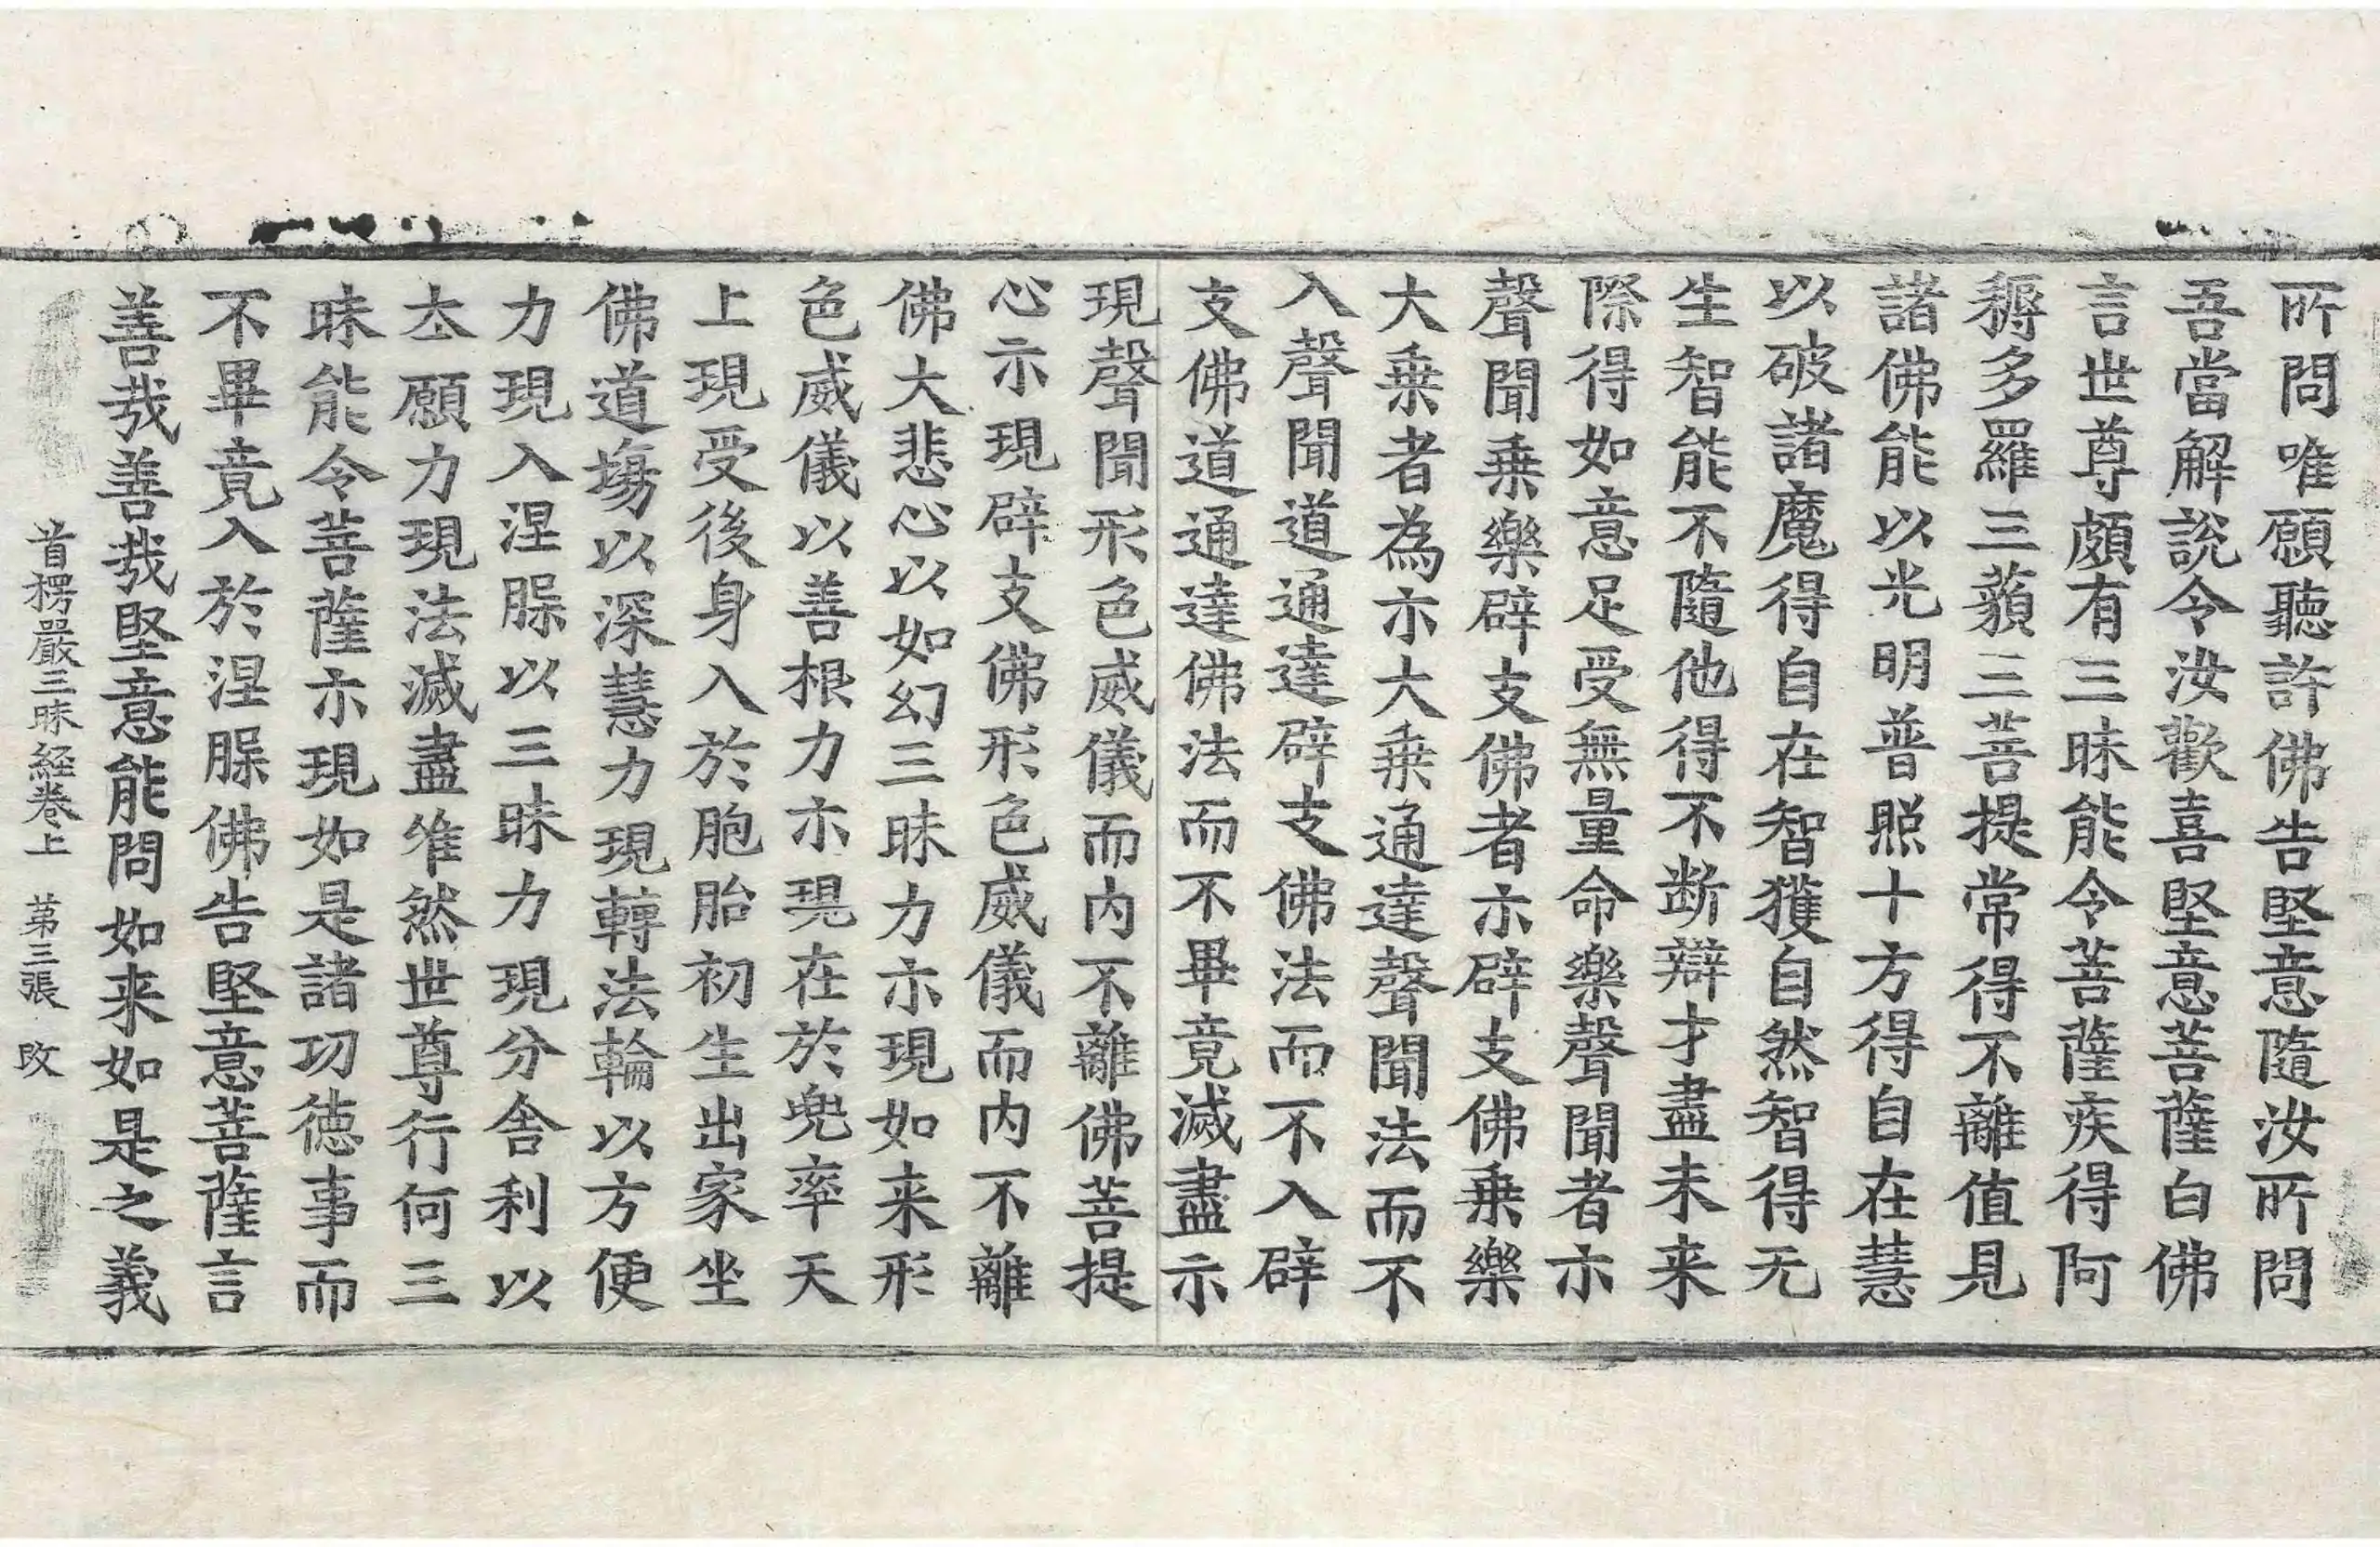 所問唯願聽許佛告堅意隨汝所問
吾當解説令汝歡喜堅意菩薩白佛
言世尊頗有三昧能令菩薩疾得阿
耨多羅三藐三菩提常得不離值見
諸佛能以光明普照十方得自在慧
以破諸魔得自在智獲自然智得无
生智能不隨他得不断辯才盡未来
際得如意足受無量命樂聲聞者示
聲聞乗樂辟支佛者示辟支佛乗樂
大乗者為示大乗通達聲聞法而不
入聲聞道通達辟支佛法而不入辟
支佛道通達佛法而不畢竟滅盡示
現聲聞形色威儀而内不離佛菩提
心示現辟支佛形色威儀而内不離
佛大悲心以如幻三昧力示現如来形
色威儀以善根力示現在於兜率天
上現受後身入於胞胎初生出家坐
佛道場以深慧力現轉法輪以方便
力現入涅槃以三昧力現分舎利以
夲願力現法滅盡唯然世尊行何三
昧能令菩薩示現如是諸功徳事而
不畢竟入於涅槃佛告堅意菩薩言
善哉善哉堅意能問如来如是之義
首楞嚴三昧経巻上　苐三張　攺